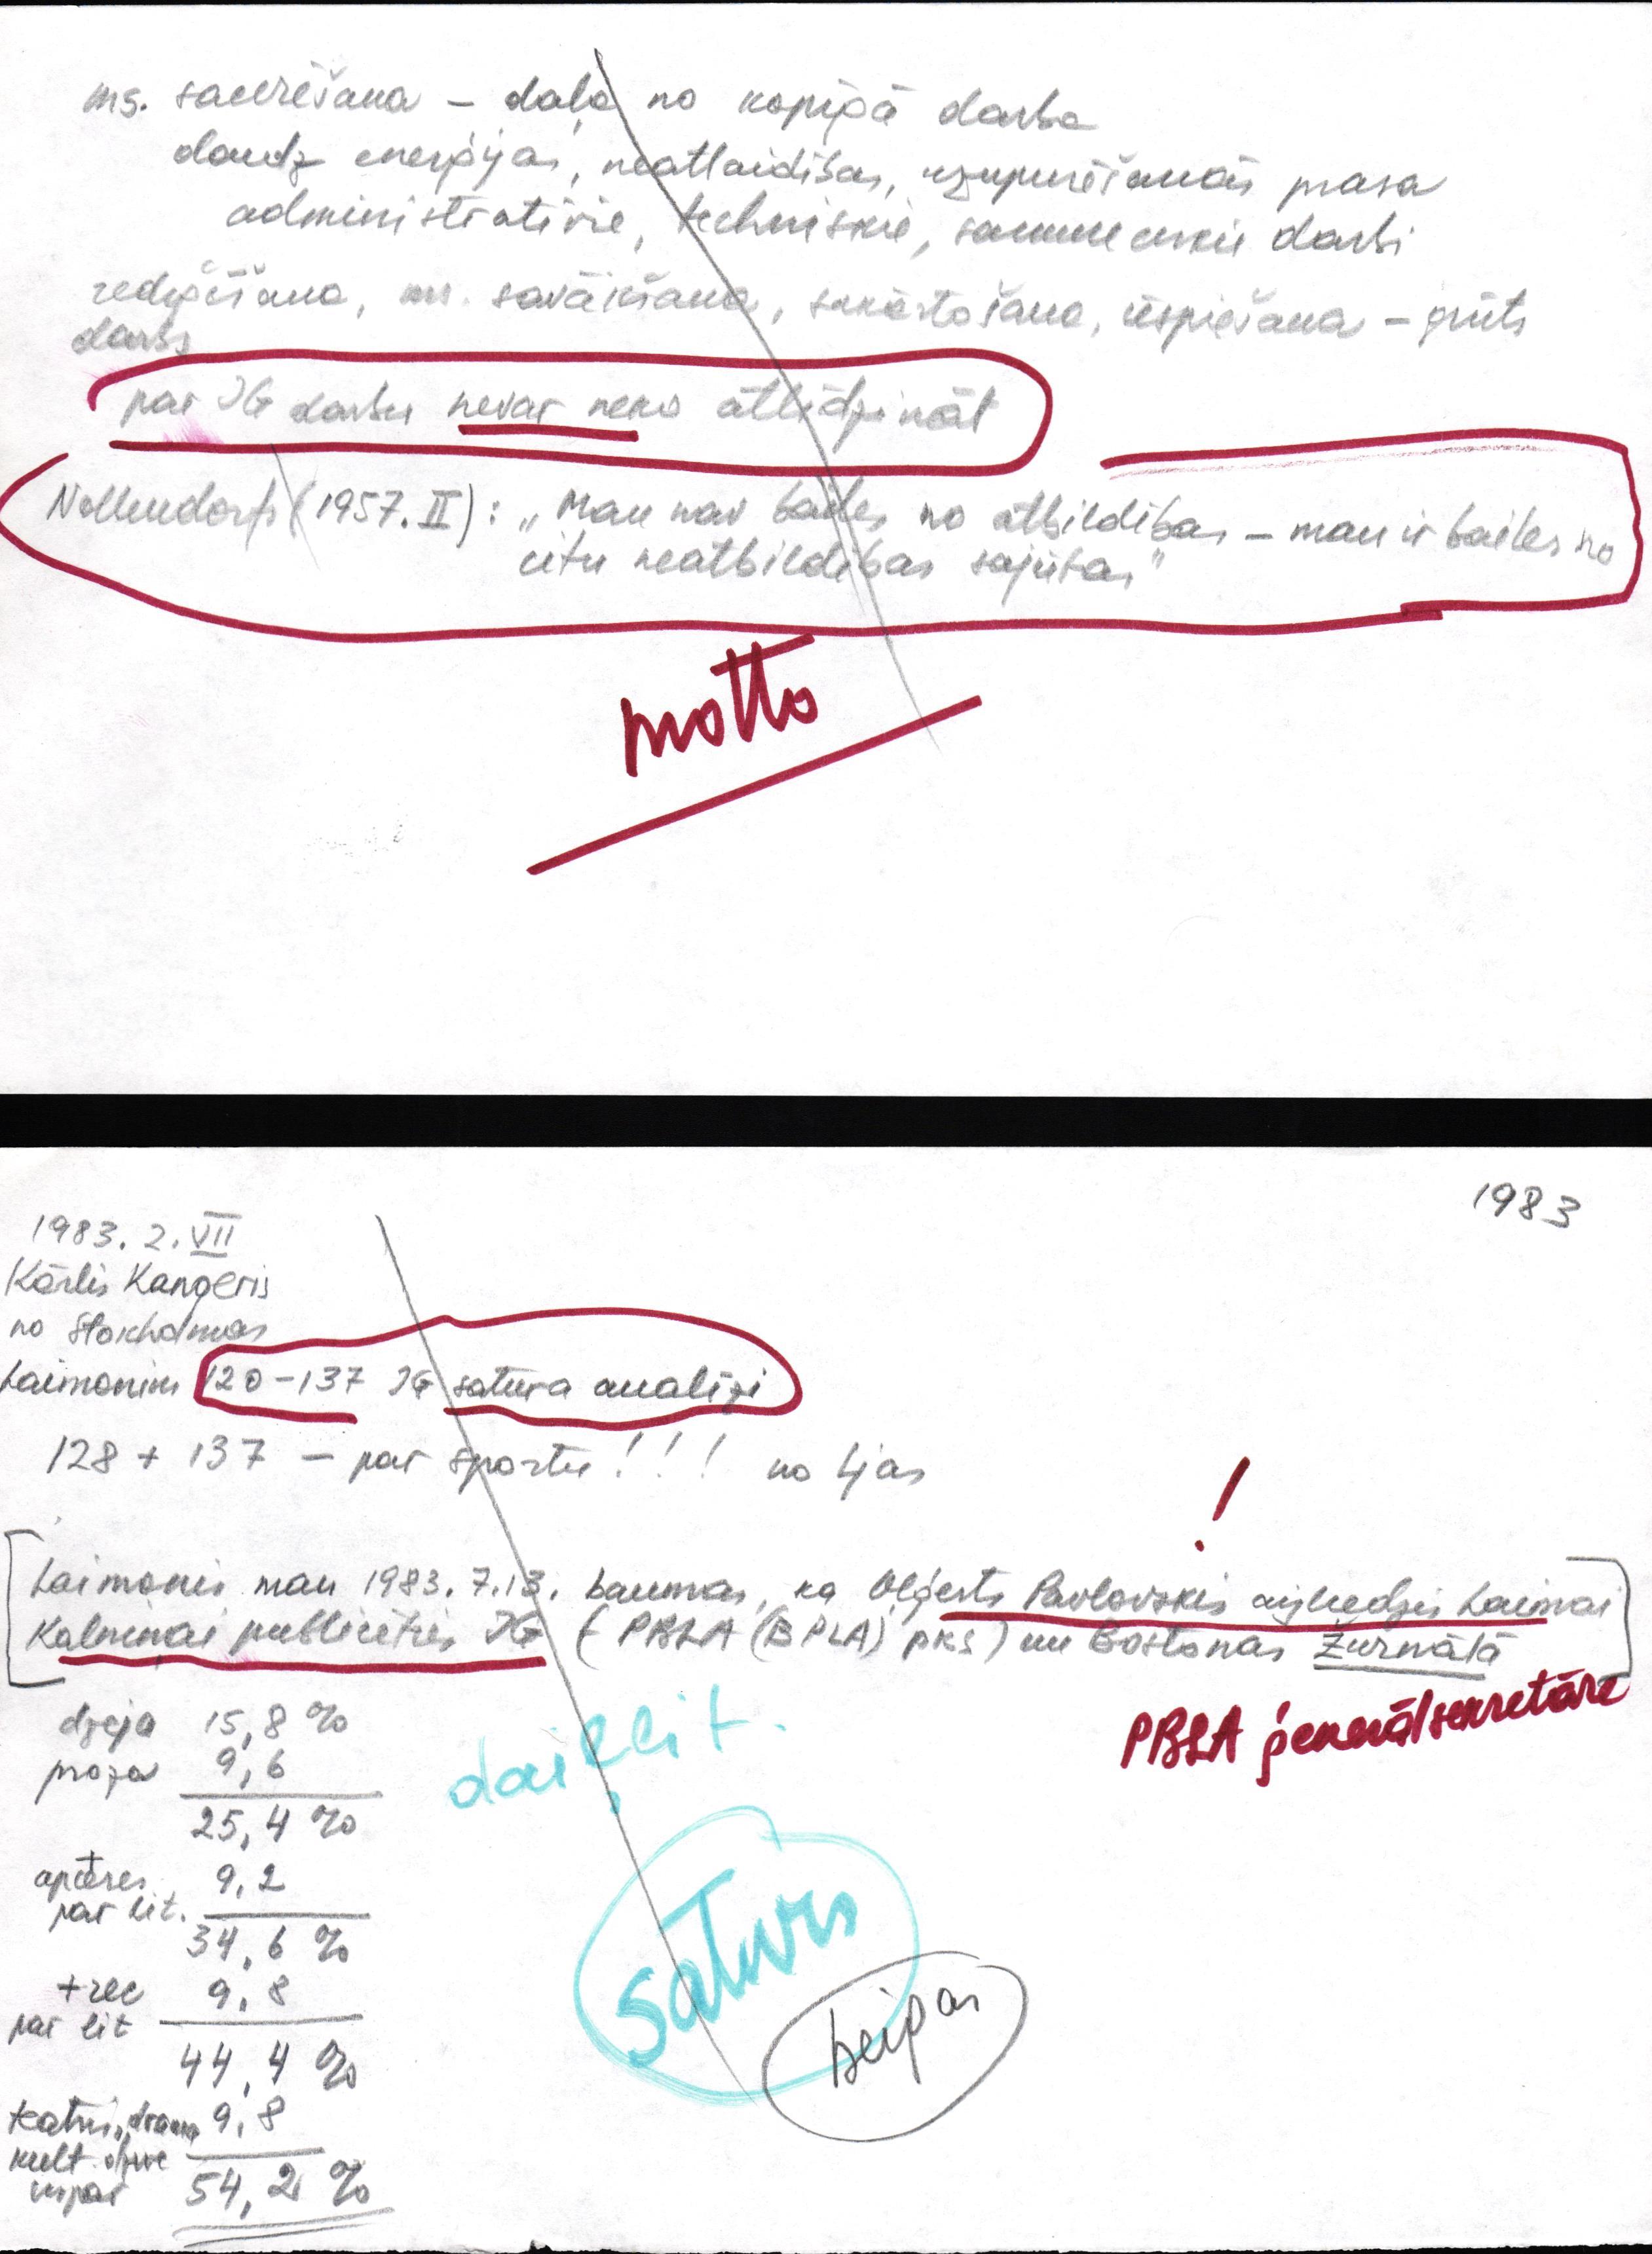 ms. sacerēšana – daļa no kopīgā darba
daudz enerģijas, neatlaidības, uzupurēšanās prasa
administratīvie, techniskie, saimnieciskie darbi
rediģēšana, ms. savākšana, sakārtošana, iespiešana – grūts
darbs
par JG darbu nevar neko atlīdzināt
Nollendorfs (1957. II): „Man nav bailes no atbildības – man ir bailes no
citu neatbildības sajūtas”
motto
1983
1983. 2. VII
Kārlis Kangeris
no Stokholmas
Laimonim 120–137 JG satura analīzi
128 + 137 – par sportu!!! no ļjas
!
Laimonis man 1983. 7. 13. , ka Oļģerts Pavlovskis aizliedzis Laimai
Kalniņai publicēties JG (PBLA (BPLA) pks) un Bostonas Žurnālā
PBLA ģenerālsekretāre
dzeja 15,8 %
proza 9,6
25,4 %
daiļlit.
+
apceres 9,2
par lit.
34,6 %
+ rec 9,8
par lit
44,4 %
saturs
beigas
teātris, drama 9,8
kult. dzīve
vispār 54,2 %